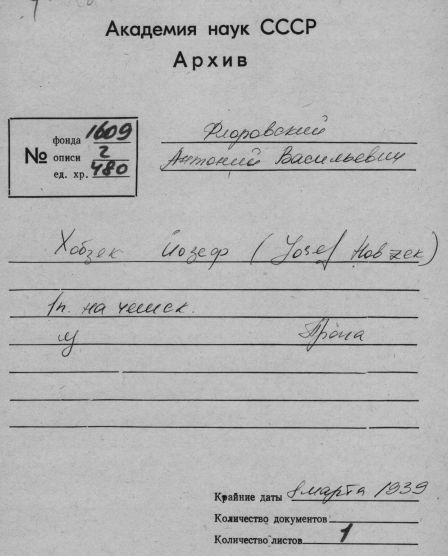 Академия наук СССР
Архив
№ фонда 1609
описи 2
ед. хр. 480
Флоровский
Антоний Васильевич
Хобзек Йозеф (Josef Hobzek)
1п. на чешск.
Прага
Крайние даты 8 марта 1939
Количество документов
Количество листов 1